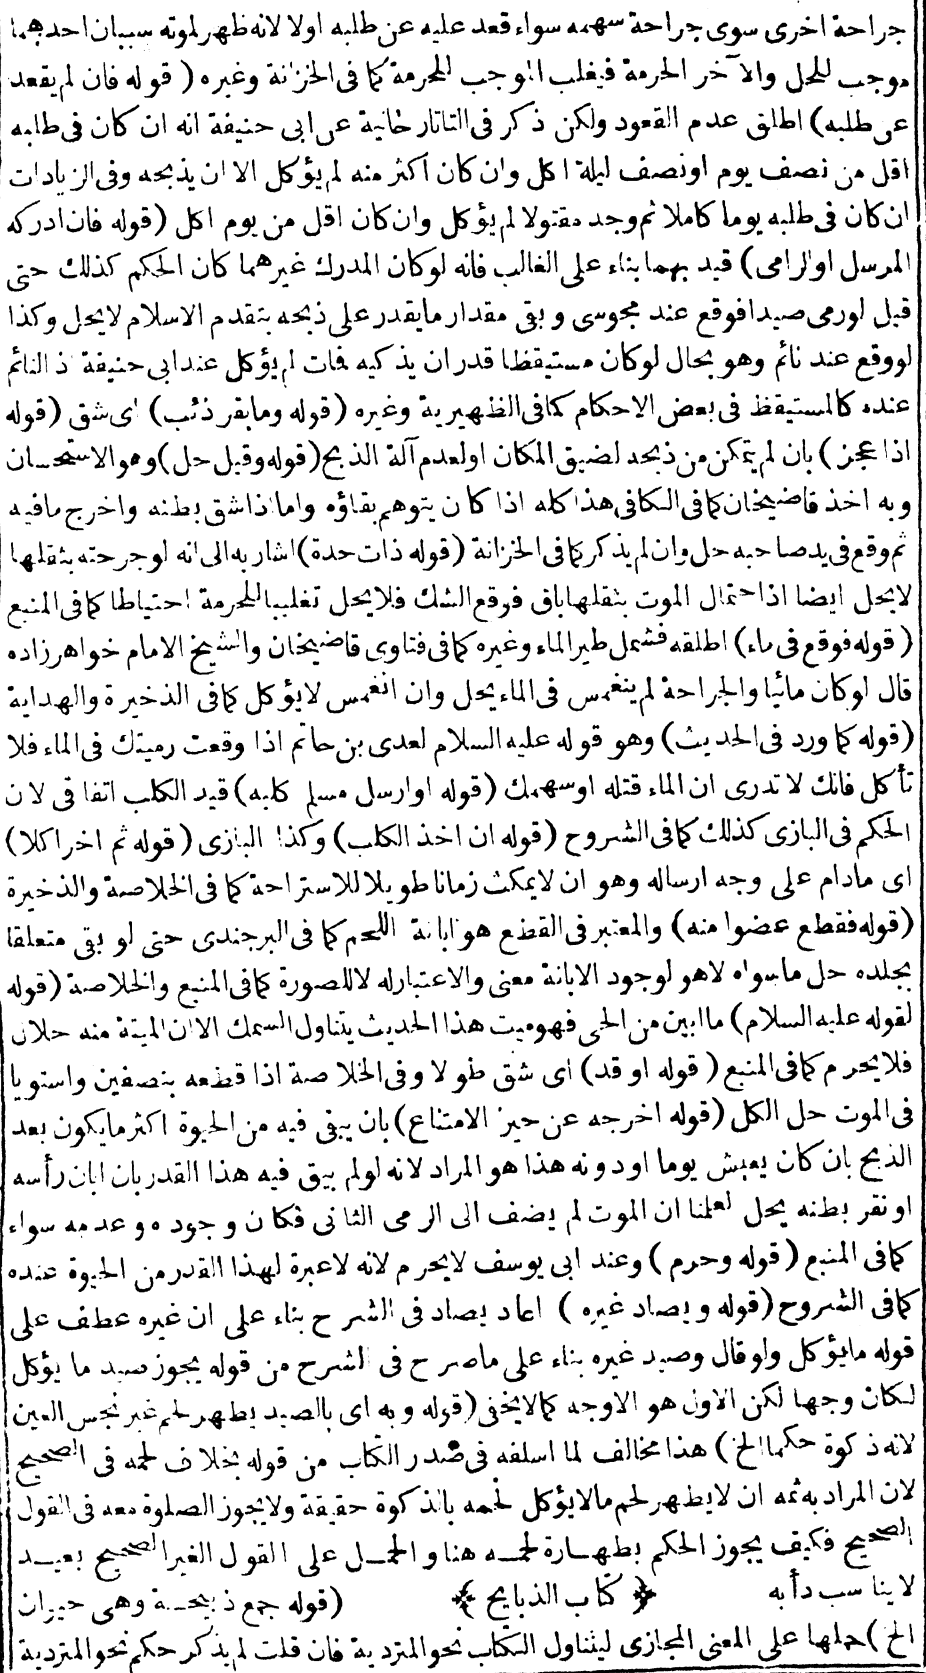 جراحة اخرى سوى جراحة سهمه سواء قعد عليه عن طلبه اولا لانه ظهر لموته سببان احدهما
موجب للحل والآخر الحرمة فيغلب الموجب للحرمة كما فى الخزانة وغيره ( قوله فان لم يقعد
عن طلبه) اطلق عدم القعود ولكن ذكر فى التاتارخانية عن ابى حنيفة انه ان كان فى طلبه
اقل من نصف يوم اونصف ليلة اكل وان كان اكثر منه لم يؤكل الا ان يذبحه وفى الزيادات
ان كان فى طلبه يوما كاملا ثم وجد مقتولا لم يؤكل وان كان اقل من يوم اكل (قوله فان ادركه
المرسل اوالرامى) قيد بهما بناء على الغالب فانه لوكان المدرك غيرهما كان الحكم كذلك حتى
قيل لورمى صيدا فوقع عند مجوسى و بقى مقدار مايقدر على ذبحه بتقدم الاسلام لايحل وكذا
لووقع عند نائم وهو بحال لوكان مستيقظا قدر ان يذكيه فمات لم يؤكل عند ابى حنيفة اذ النائم
عنده كالمستيقظ فى بعض الاحكام كمافى الظهيرية وغيره (قوله ومابقر ذئب) اى شق (قوله
اذا عجز) بان لم يتمكن من ذبحه لضيق المكان اولعدم آلة الذبح (قوله وقيل حل) وهو الاستحسان
وبه اخذ قاضيخان كمافى الكافى هذا كله اذا كان يتوهم بقاؤه واما اذا شق بطنه واخرج مافيه
ثم وقع فى يد صاحبه حل وان لم يذكر كمافى الخزانة (قوله ذات حدة) اشار به الى انه لوجرحته بثقلها
لايحل ايضا اذا حتمال الموت بثقلها باق فوقع الشك فلايحل تغليبا للحرمة احتياطا كمافى المنبع
(قوله فوقع فى ماء) اطلقه فشمل طير الماء وغيره كمافى فتاوى قاضيخان والشيخ الامام خواهرزاده
قال لوكان مائيا والجراحة لم ينغمس فى الماء يحل وان انغمس لايؤكل كمافى الذخيرة والهداية
(قوله كما ورد فى الحديث) وهو قوله عليه السلام لعدى بن حاتم اذا وقعت رميتك فى الماء فلا
تأكل فانك لا تدرى ان الماء قتله اوسهمك (قوله اوارسل مسلم كلبه) قيد الكلب اتفاقى لان
الحكم فى البازى كذلك كمافى الشروح (قوله ان اخذ الكلب) وكذا البازى (قوله ثم اخر اكلا)
اى مادام على وجه ارساله وهو ان لايمكث زمانا طويلا للاستراحة كما فى الخلاصة والذخيرة
(قوله فقطع عضوا منه) والمعتبر فى القطع هو ابانة اللحم كما فى البرجندى حتى لو بقى متعلقا
بجلده حل ماسواه لاهو لوجود الابانة معنى والاعتبار له لا للصورة كمافى المنبع والخلاصة (قوله
لقوله عليه السلام) ما ابين من الحى فهوميت هذا الحديث يتناول السمك الا ان الميتة منه حلال
فلايحرم كمافى المنبع (قوله او قد) اى شق طولا وفى الخلاصة اذا قطعه بنصفين واستويا
فى الموت حل الكل (قوله اخرجه عن حيز الامتناع) بان يبقى فيه من الحيوة اكثر مايكون بعد
الذبح بان كان يعيش يوما اودونه هذا هو المراد لانه لولم يبق فيه هذا القدر بان ابان رأسه
اونقر بطنه يحل لعلمنا ان الموت لم يضف الى الرمى الثانى فكان وجوده وعدمه سواء
كمافى المنبع (قوله وحرم) وعند ابى يوسف لايحرم لانه لاعبرة لهذا القدر من الحيوة عنده
كمافى الشروح (قوله و يصاد غيره ) اعاد يصاد فى الشرح بناء على ان غيره عطف على
قوله مايؤكل ولوقال وصيد غيره بناء على ماصرح فى الشرح من قوله يجوز صيد ما يؤكل
لكان وجها لكن الاول هو الاوجه كمالايخفى (قوله وبه اى بالصيد يطهر لحم غير نجس العين
لانه ذكوة حكما الخ) هذا مخالف لما اسلفه فى صدر الكتاب من قوله بخلاف لحمه فى الصحيح
لان المراد به ثمه ان لايطهر لحم مالايؤكل لحمه بالذكوة حقيقة ولايجوز الصلوة معه فى القول
الصحيح فكيف يجوز الحكم بطهارة لحمه هنا والحمل على القول الغير الصحيح بعيد
لايناسب دأبه ﴿ كتاب الذبايح ﴾ (قوله جمع ذبيحة وهى حيوان
الخ) حملها على المعنى المجازى ليتناول الكتاب نحو المتردية فان قلت لم يذكر حكم نحو المتردية